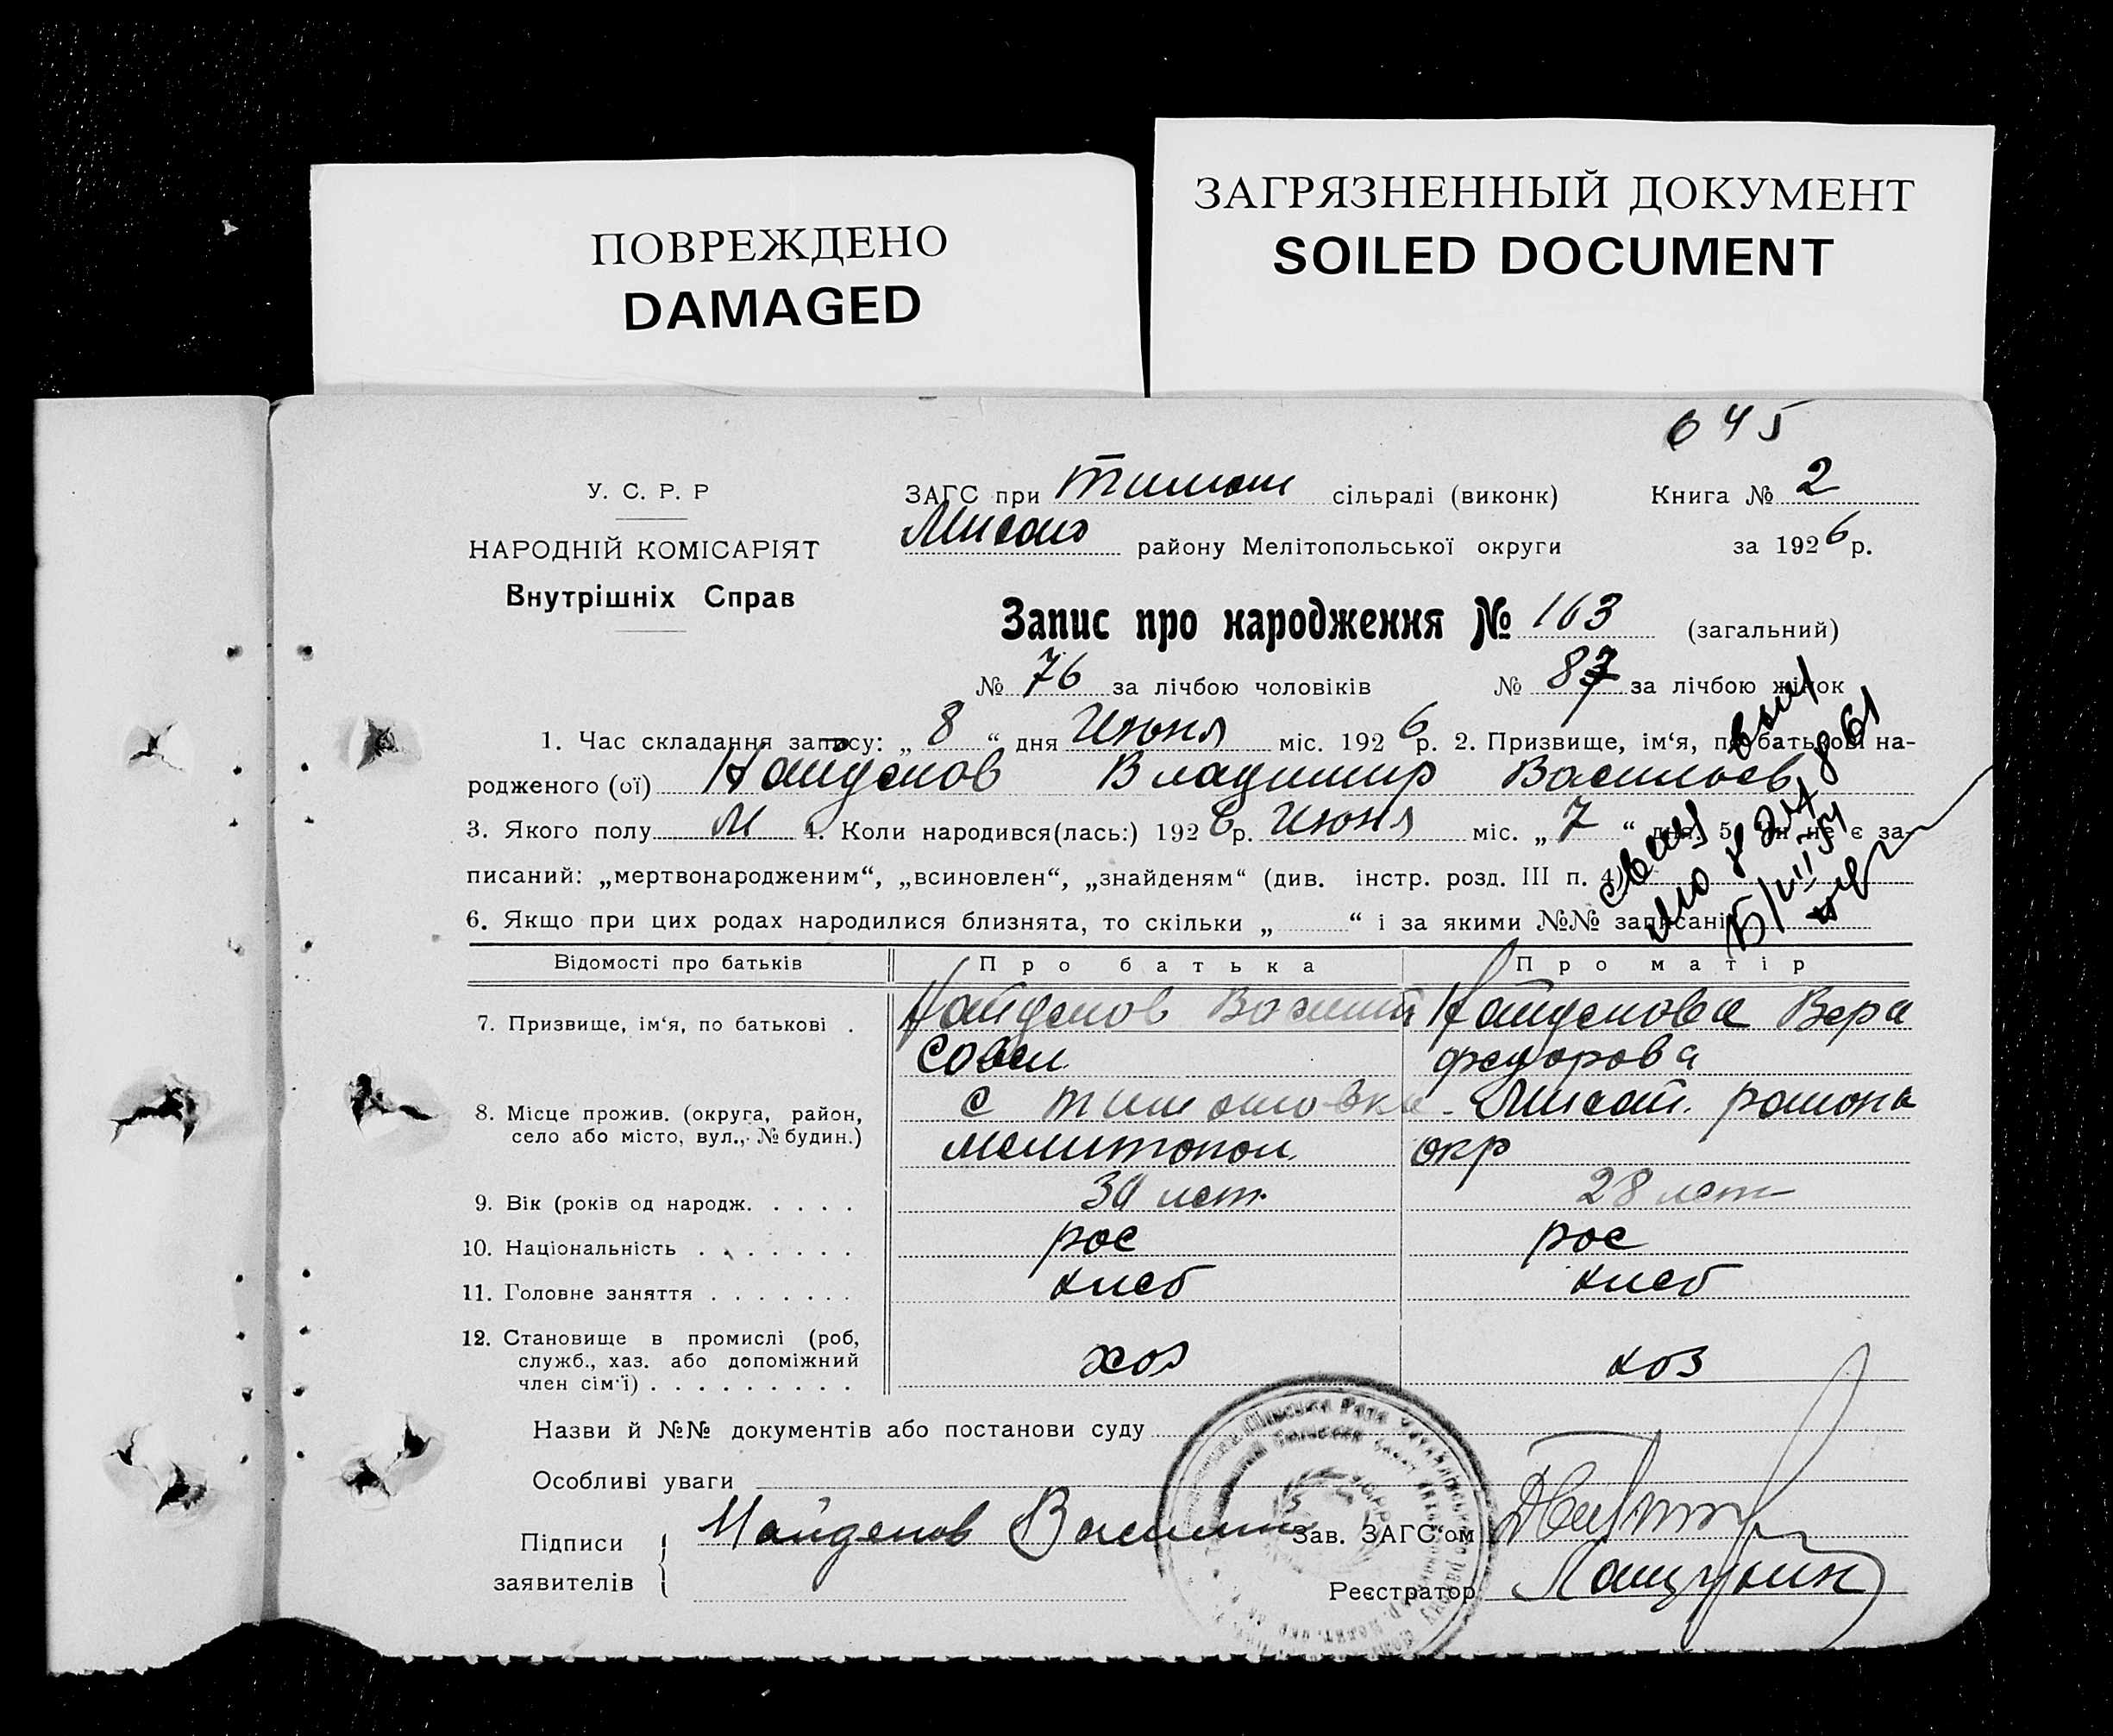 ПОВРЕЖДЕНО
DAMAGED
ЗАГРЯЗНЕННЫЙ ДОКУМЕНТ
SOILED DOCUMENT
645
У. С. Р. Р
НАРОДНІЙ КОМІСАРІЯТ
Внутрішніх Справ
ЗАГС при Тимош сільраді (виконк) Книга № 2
району Мелітопольської округи за 1926 р.
Запис про народження № 163 (загальний)
№ 76 за лічбою чоловіків № 87 за лічбою жінок
1. Час складання запису: „ 8 “ дня Июня міс. 1926 р. 2. Призвище, ім‘я, по батькові на-
родженого (ої) Найденов Владимир Васильев
3. Якого полу М 4. Коли народився(лась:) 1926 р. Июня міс. „ 7 “ дня. 5. Чи не є за-
писаний: „мертвонародженим“, „всиновлен“, „знайденям“ (див. інстр. розд. III п. 4)
6. Якщо при цих родах народилися близнята, то скільки „ “ і за якими №№ записані
Відомості про батьків Про батька Про матір
7. Призвище, ім‘я, по батькові . Найденов Василий Найденова Вера
федорова
8. Місце прожив. (округа, район, село або місто, вул., № будин.) с Тимошовки - района
мелитопол окр
9. Вік (років од народж. . . . . 30 лет. 28 лет
10. Національність . . . . . . . рос рос
11. Головне заняття . . . . . . . хлеб хлеб
12. Становище в промислі (роб, служб., хаз. або допоміжний член сім‘ї) . . . . . . . . . хоз хоз
Назви й №№ документів або постанови суду
Особливі уваги
Підписи заявителів Найденов Василий Зав. ЗАГС‘ом
Реєстратор